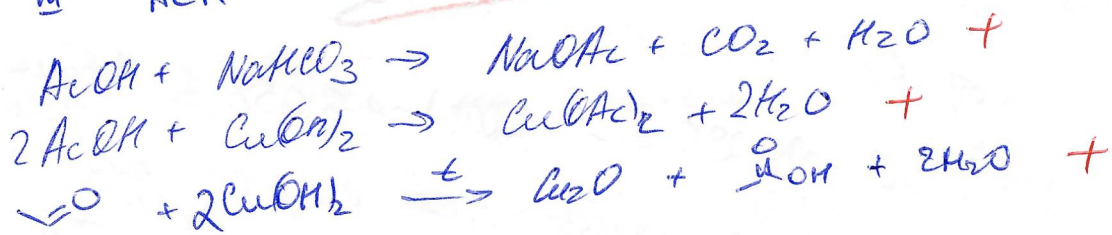 AcOH + NaHCO3 → NaOAc + CO2 + H2O +
2AcOH + Cu(OH)2 → Cu(OAc)2 + 2H2O +
=O + 2Cu(OH)2 t → Cu2O + O OH + 2H2O +